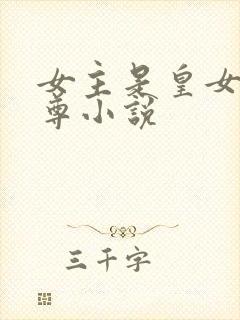 女主是皇女
尊小說
三千字